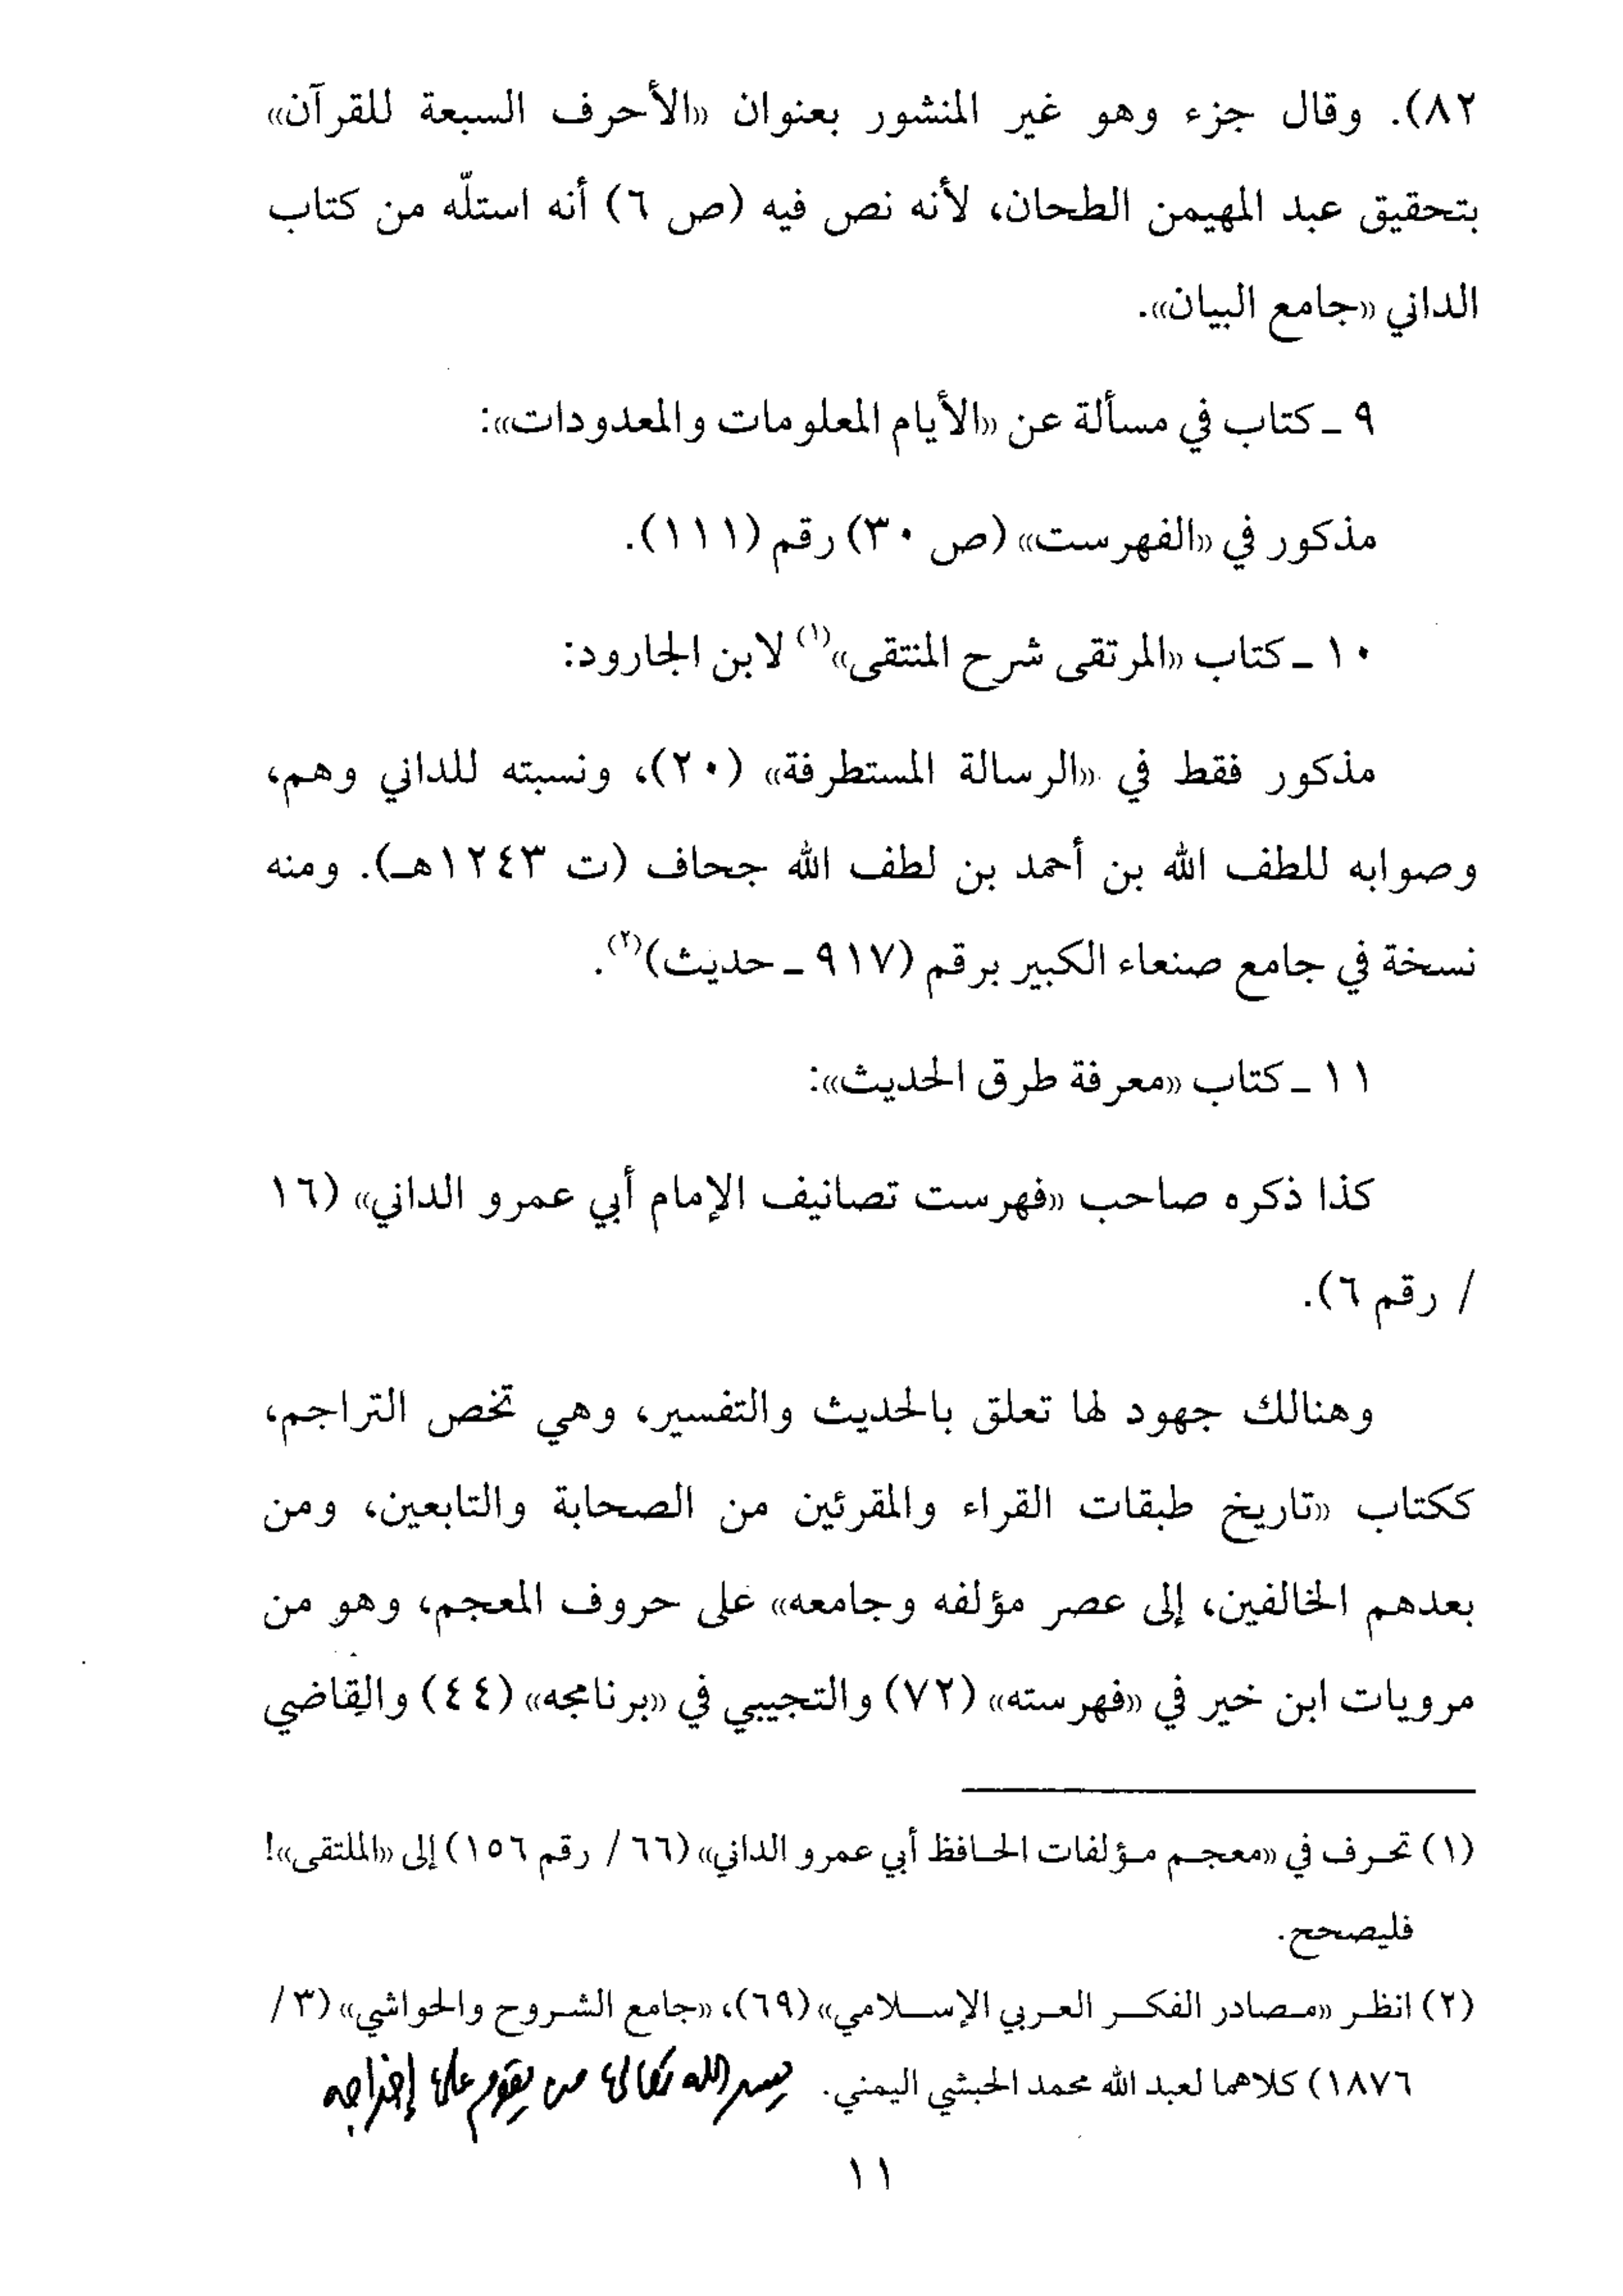 ٨٢). وقال جزء وهو غير المنشور بعنوان «الأحرف السبعة للقرآن»
بتحقيق عبد المهيمن الطحان، لأنه نص فيه (ص ٦) أنه استلّه من كتاب
الداني «جامع البيان».
٩ ـ كتاب في مسألة عن «الأيام المعلومات والمعدودات»:
مذكور في «الفهرست» (ص ٣٠) رقم (١١١).
١٠ ـ كتاب «المرتقى شرح المنتقى»(١) لابن الجارود:
مذكور فقط في «الرسالة المستطرفة» (٢٠)، ونسبته للداني وهم،
وصوابه للطف الله بن أحمد بن لطف الله جحاف (ت ١٢٤٣هـ). ومنه
نسخة في جامع صنعاء الكبير برقم (٩١٧ ـ حديث)(٢).
١١ ـ كتاب «معرفة طرق الحديث»:
كذا ذكره صاحب «فهرست تصانيف الإمام أبي عمرو الداني» (١٦
/ رقم ٦).
وهنالك جهود لها تعلق بالحديث والتفسير، وهي تخص التراجم،
ككتاب «تاريخ طبقات القراء والمقرئين من الصحابة والتابعين، ومن
بعدهم الخالفين، إلى عصر مؤلفه وجامعه» على حروف المعجم، وهو من
مرويات ابن خير في «فهرسته» (٧٢) والتجيبي في «برنامجه» (٤٤) والقاضي
(١) تحـرف في «معجـم مـؤلفات الحـافظ أبي عمرو الداني» (٦٦ / رقم ١٥٦) إلى «الملتقى»!
فليصحح.
(٢) انظـر «مـصادر الفكـر العـربي الإسـلامي» (٦٩)، «جامع الشـروح والحواشي» (٣ /
١٨٧٦) كلاهما لعبد الله محمد الحبشي اليمني. يسر الله تعالى من يقوم على إخراجه
١١